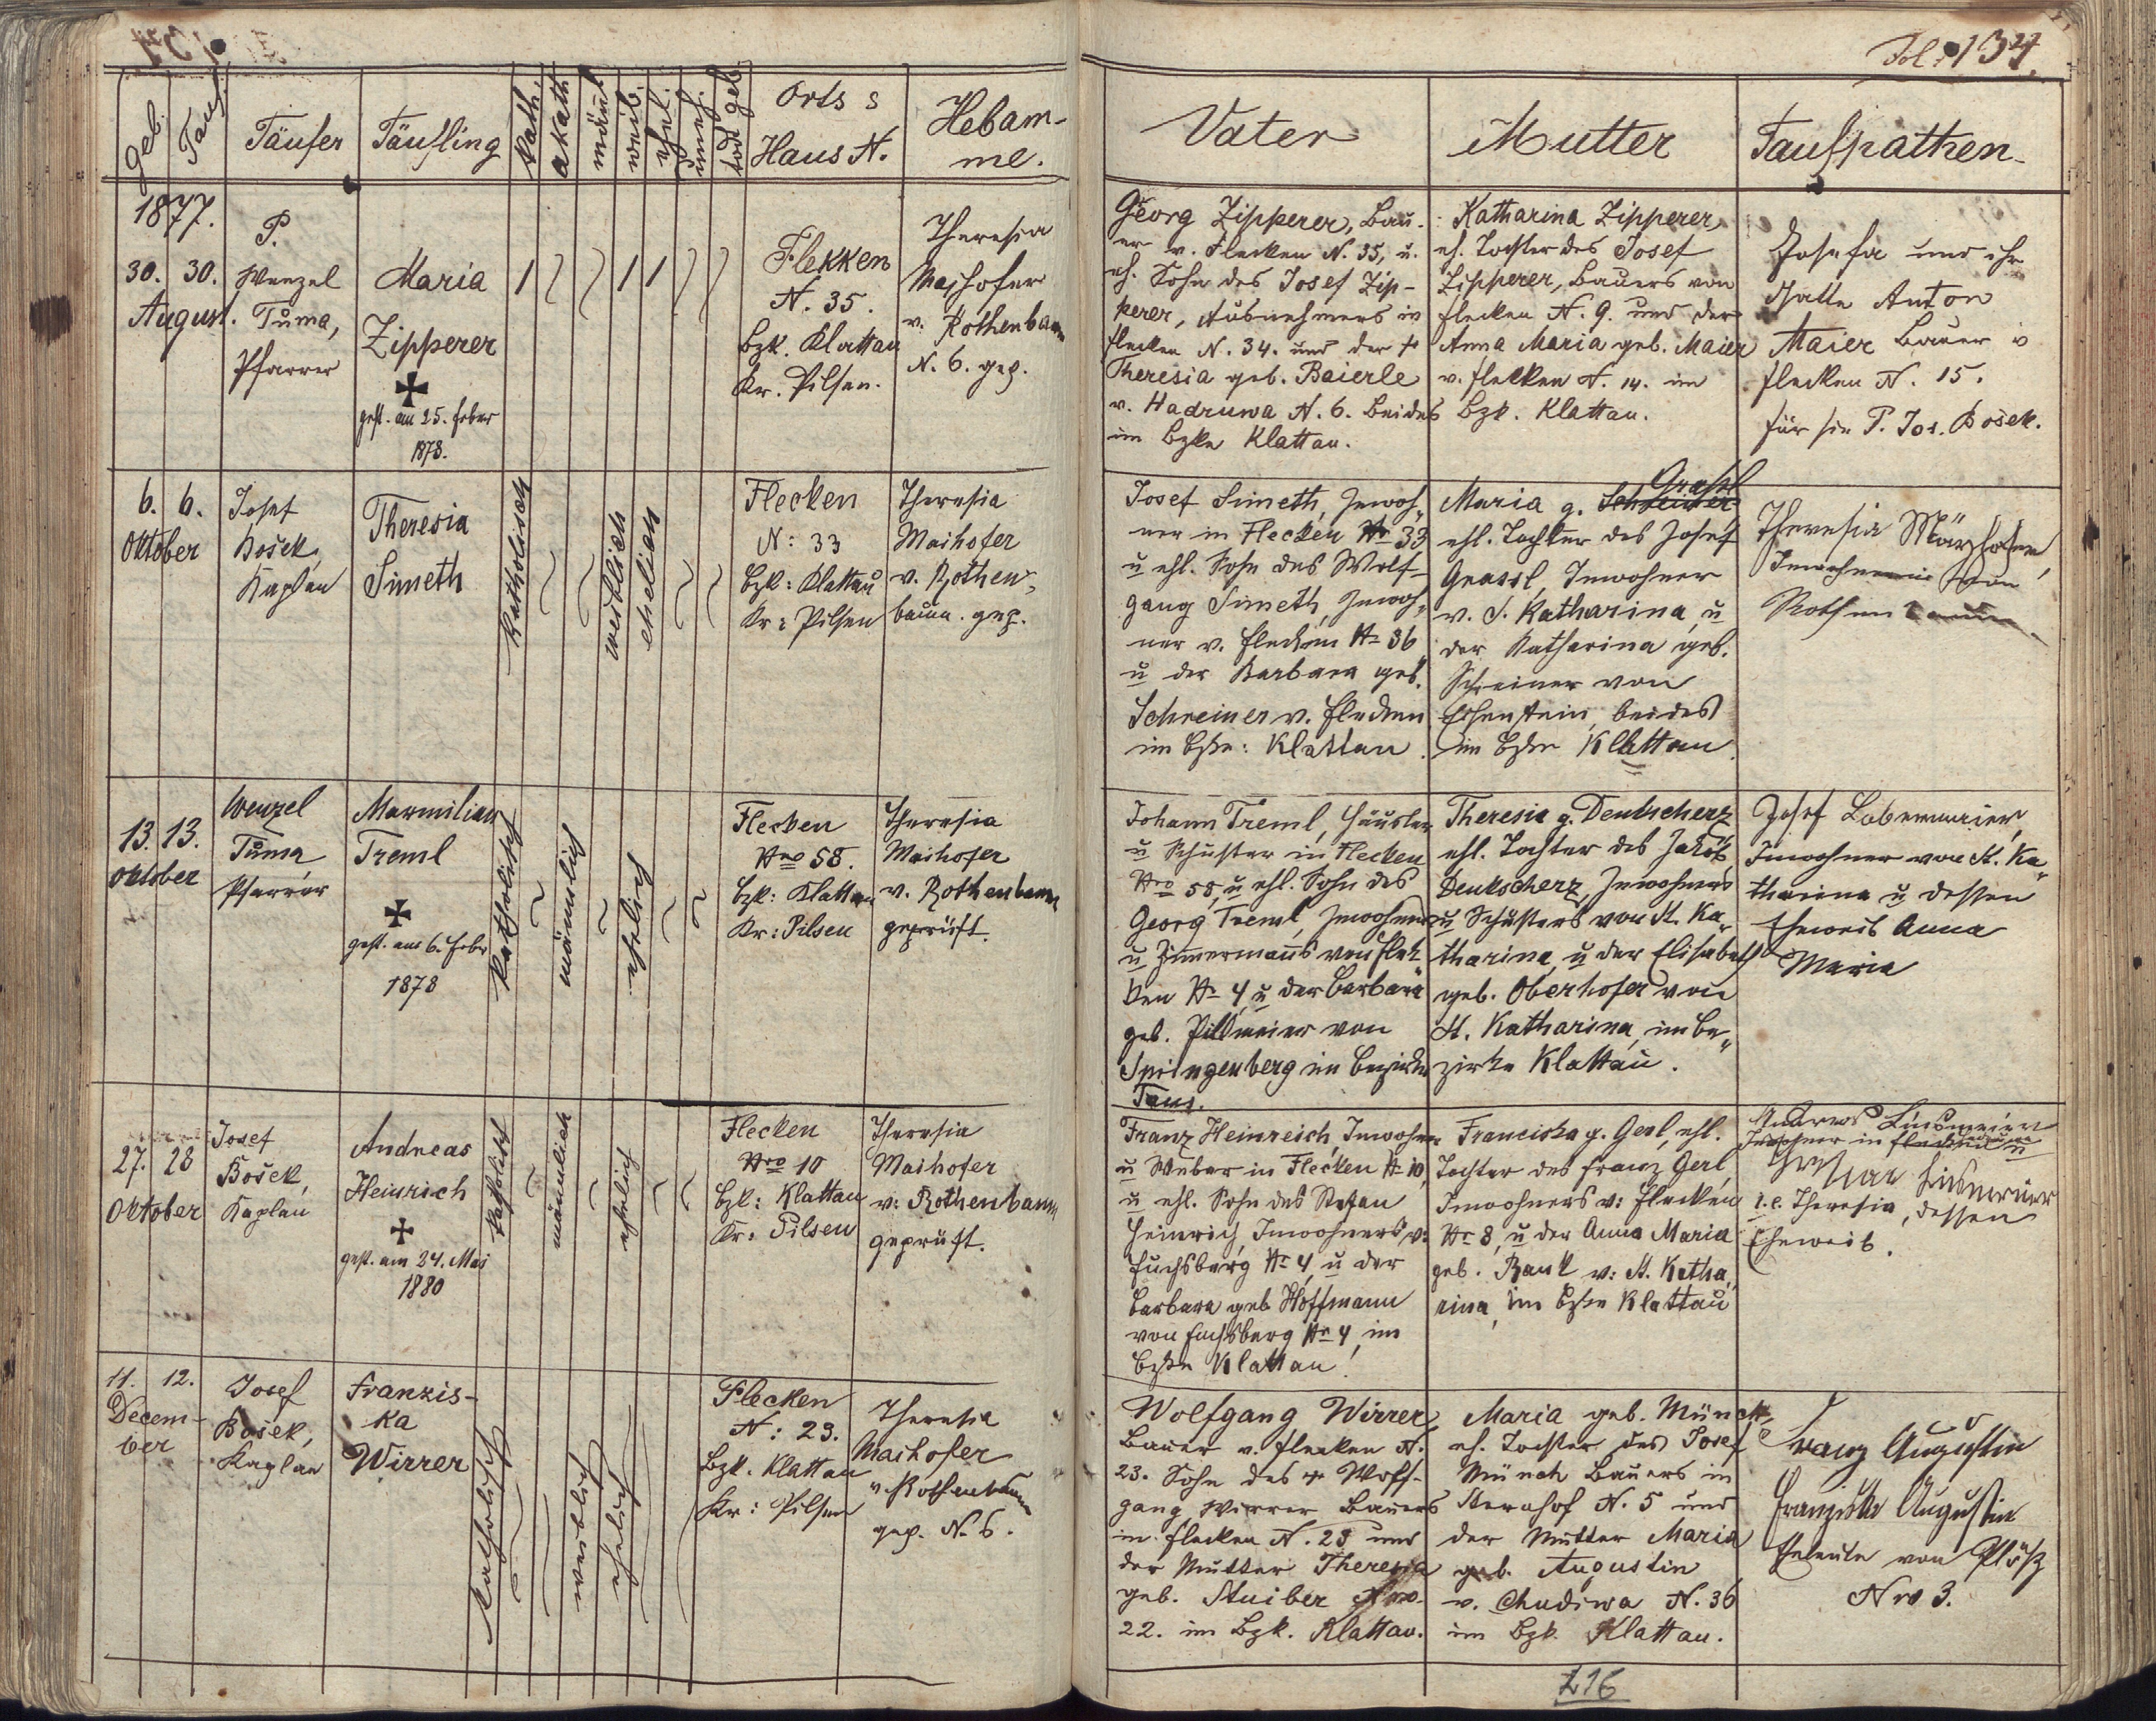 Fol: 134.
Geb.
Tauf.
Täufer
Täufling
kath.
akath
männl
weib.
ehel.
uneh.
tod geb.
Orts s
Haus N.
Hebam-
me.
Vater
Mutter
Taufpathen
1877.
30. 30.
August.
P.
Wenzel
Tůma,
Pfarrer
Maria
Zipperer
gest. am 25. Feber
1878.
1 1 1
Flekken
N. 35.
Bzk. Klattau
Kr. Pilsen.
Theresia
Maihofer
v. Rothenbaum
N. 6. gep.
Georg Zipperer, Bau-
er v. Flecken N. 35, u.
eh. Sohn des Josef Zip-
perer, Ausnehmers in
Flecken N. 34. und der †
Theresia geb. Baierle
v. Hadruwa N. 6. beides
im Bzke Klattau.
Katharina Zipperer
eh. Tochter des Josef
Zipperer, Bauers von
Flecken N. 9. und der
Anna Maria geb. Maier
v. Flecken N. 14. im
Bzk. Klattau.
Josefa und ihr
Gatte Anton
Maier Bauer in
Flecken N. 15.
für sie P. Jos. Bošek.
6. 6.
Oktober
Josef
Bošek,
Kaplan
Theresia
Simeth
katholisch
weiblich
ehelich
Flecken
N: 33
Bzk: Klattau
Kr: Pilsen
Theresia
Maihofer
v. Rothen-
baum. gep.
Josef Simeth, Inwoh-
ner in Flecken No 33
u ehl. Sohn des Wolf-
gang Simeth, Inwoh-
ner v. Flecken No 36
u der Barbara geb.
Schreiner v. Flecken
im Bzke: Klattau.
Grassl
Maria g. Schreiner
ehl. Tochter des Josef
Grassl, Inwohner
v. S. Katharina, u
der Katharina geb.
Schreiner von
Eisenstein, beides
im Bzke Klattau
Theresia
Inwohnerin von
Rothenbaum.
13. 13.
Oktober
Wenzel
Tůma
Pfarrer
Maxmilian
Treml
gest. am 6. Febr
1878
katholisch
männlich
ehelich
Flecken
Nro 58.
Bzk: Klattau
Kr: Pilsen
Theresia
Maihofer
v. Rothenbaum
geprüft.
Johann Treml, Häusler
u Schuster in Flecken
Nro 58, u ehl. Sohn des
Georg Treml, Inwohner
u Zimmermanns von Flek-
ken No 4, u der Barbara
geb. Pillmeier von
Springenberg im Bezirke
Taus.
Theresia g. Deutscherz
ehl. Tochter des Jakob
Deutscherz, Inwohners
u Schusters von St. Ka-
tharina, u der Elisabeth
geb. Oberhofer von
St. Katharina, im Be-
zirke Klattau.
Josef
Inwohner von St. Ka-
tharina u dessen
Eheweib Anna
Maria
27. 28
Oktober
Josef
Bošek,
Kaplan
Andreas
Heinrich
gest. am 24. Mai
1880
katholisch
männlich
ehelich
Flecken
Nro 10
Bzk: Klattau
Kr: Pilsen
Theresia
Maihofer
v: Rothenbaum
geprüft.
Franz Heinreich, Inwohner
u Weber in Flecken No 10,
u ehl. Sohn des Stefan
Heinrich, Inwohners v:
Fuchsberg No 4, u der
Barbara geb. Hoffmann
von Fuchsberg No 4, im
Bzke Klattau!
Franciska g. Gerl, ehl.
Tochter des Franz Gerl,
Inwohners v: Flecken
No 8, u der Anna Maria
geb. Rank v: St. Katha-
rina, im Bzke Klattau
Andreas Linsmeier
Inwohner in Flecken u
Linsmeier
i. e. Theresia, dessen
Eheweib.
11. 12.
Decem-
ber
Josef
Bošek,
Kaplan
Franzis-
ka
Wirrer
katholisch
weiblich
ehelich
Flecken
N: 23.
Bzk. Klattau
Kr: Pilsen
Theresia
Maihofer
v. Rothenbaum
gep. N. 6.
Wolfgang Wirrer,
Bauer v. Flecken N.
23. Sohn des † Wolf-
gang Wirrer Bauers
in Flecken N. 23 und
der Mutter Theresia
geb. Stuiber Nro.
22. im Bzk. Klattau.
Maria geb. Münch,
eh. Tochter des Josef
Münch Bauers in
Sternhof N. 5 und
der Mutter Maria
geb. Augustin
v. Chudiwa N. 36
im Bzk. Klattau.
Franz Augustin
Franziska Augustin
Eheleute von Plöß
Nro 3.
216